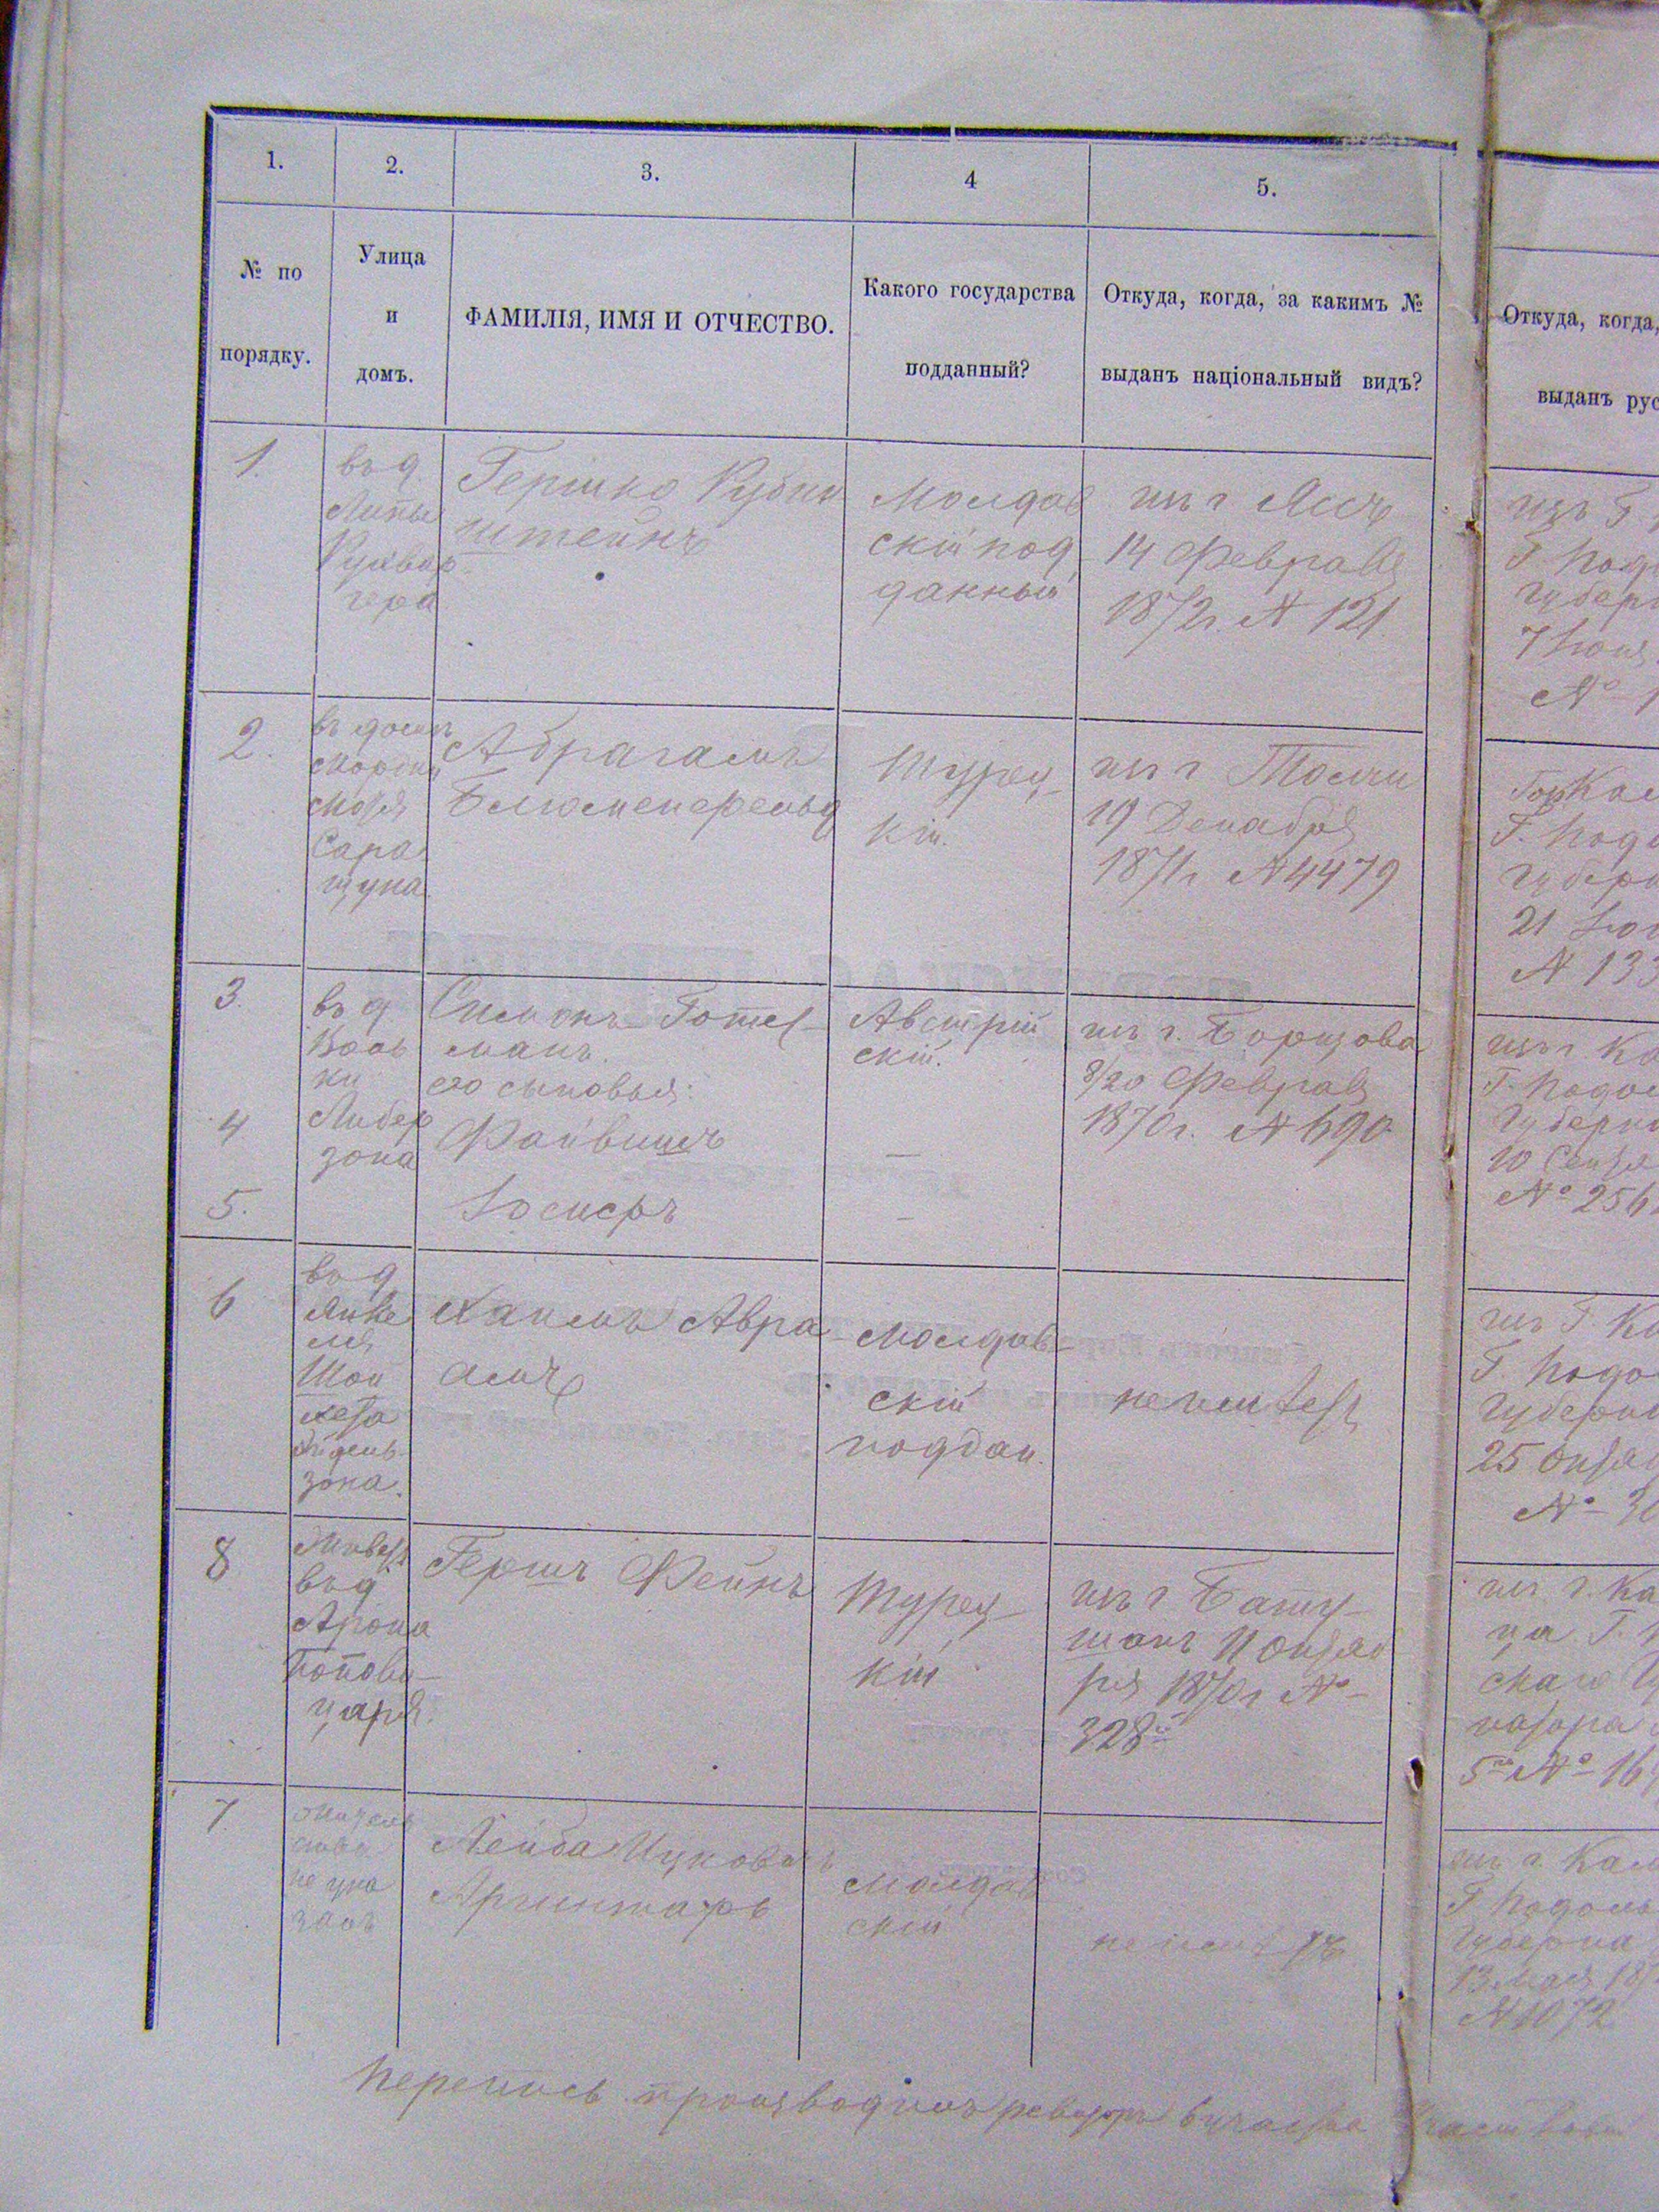 1.
2.
3.
4
5.
№ по
порядку.
Улица
и
домъ.
ФАМИЛІЯ, ИМЯ И ОТЧЕСТВО.
Какого государства
подданный?
Откуда, когда, за какимъ №
выданъ національный видъ?
Откуда, когда,
выданъ рус
1.
въ д.
Липы
гера
Гершко Рубин
штейнъ
Молдав
скій под
данный
изъ г. Яссъ
14 Февраля
1872г. № 121.
изъ Г.
Г. Подо
Губерн
7 Іюня
№ 1
2.
въ домѣ
Сара
щука
Абрагамъ
Блюменфельд
Турец
кій.
из г Толчи
19 Декабря
1871г №4479
Г. Подо
Губерн
21
№ 133
3.
въ д.
Воль
ки
Либер
зона
Симонъ Готес
манъ.
его сыновья:
Австрій
скій.
изъ г. Борщова
8/20 Февраля
1870г. № 690
изъ г Ка
Г. Подол
Губерна
10 Сентя
№ 256
4
Файвишъ
—
5.
Іосифъ
—
6
въ д
Янке
ля
Шой
хета
зона.
Хаимъ Авра
амъ
Молдав
скій
поддан.
неимѣетъ
изъ Г. Ка
Г. Подо
Губерна
25 Октяб
№ 3
8
Живетъ
въ д
Арона
Попови
царя.
Гершъ Фейнъ
Турец
кій
изъ г Бату
шанъ 11 Октяб
ря 1870г №
328
изъ г. Ка
ца Г.
скаго Гу
натора
5 № 16
7.
не ука
занъ
Лейба Ицковичъ
Аргинтарь
Молдав
скій
неимѣетъ
изъ г. Кам
Г Подоль
Губерна
13 Мая 18
№1072
Перепись производилъ